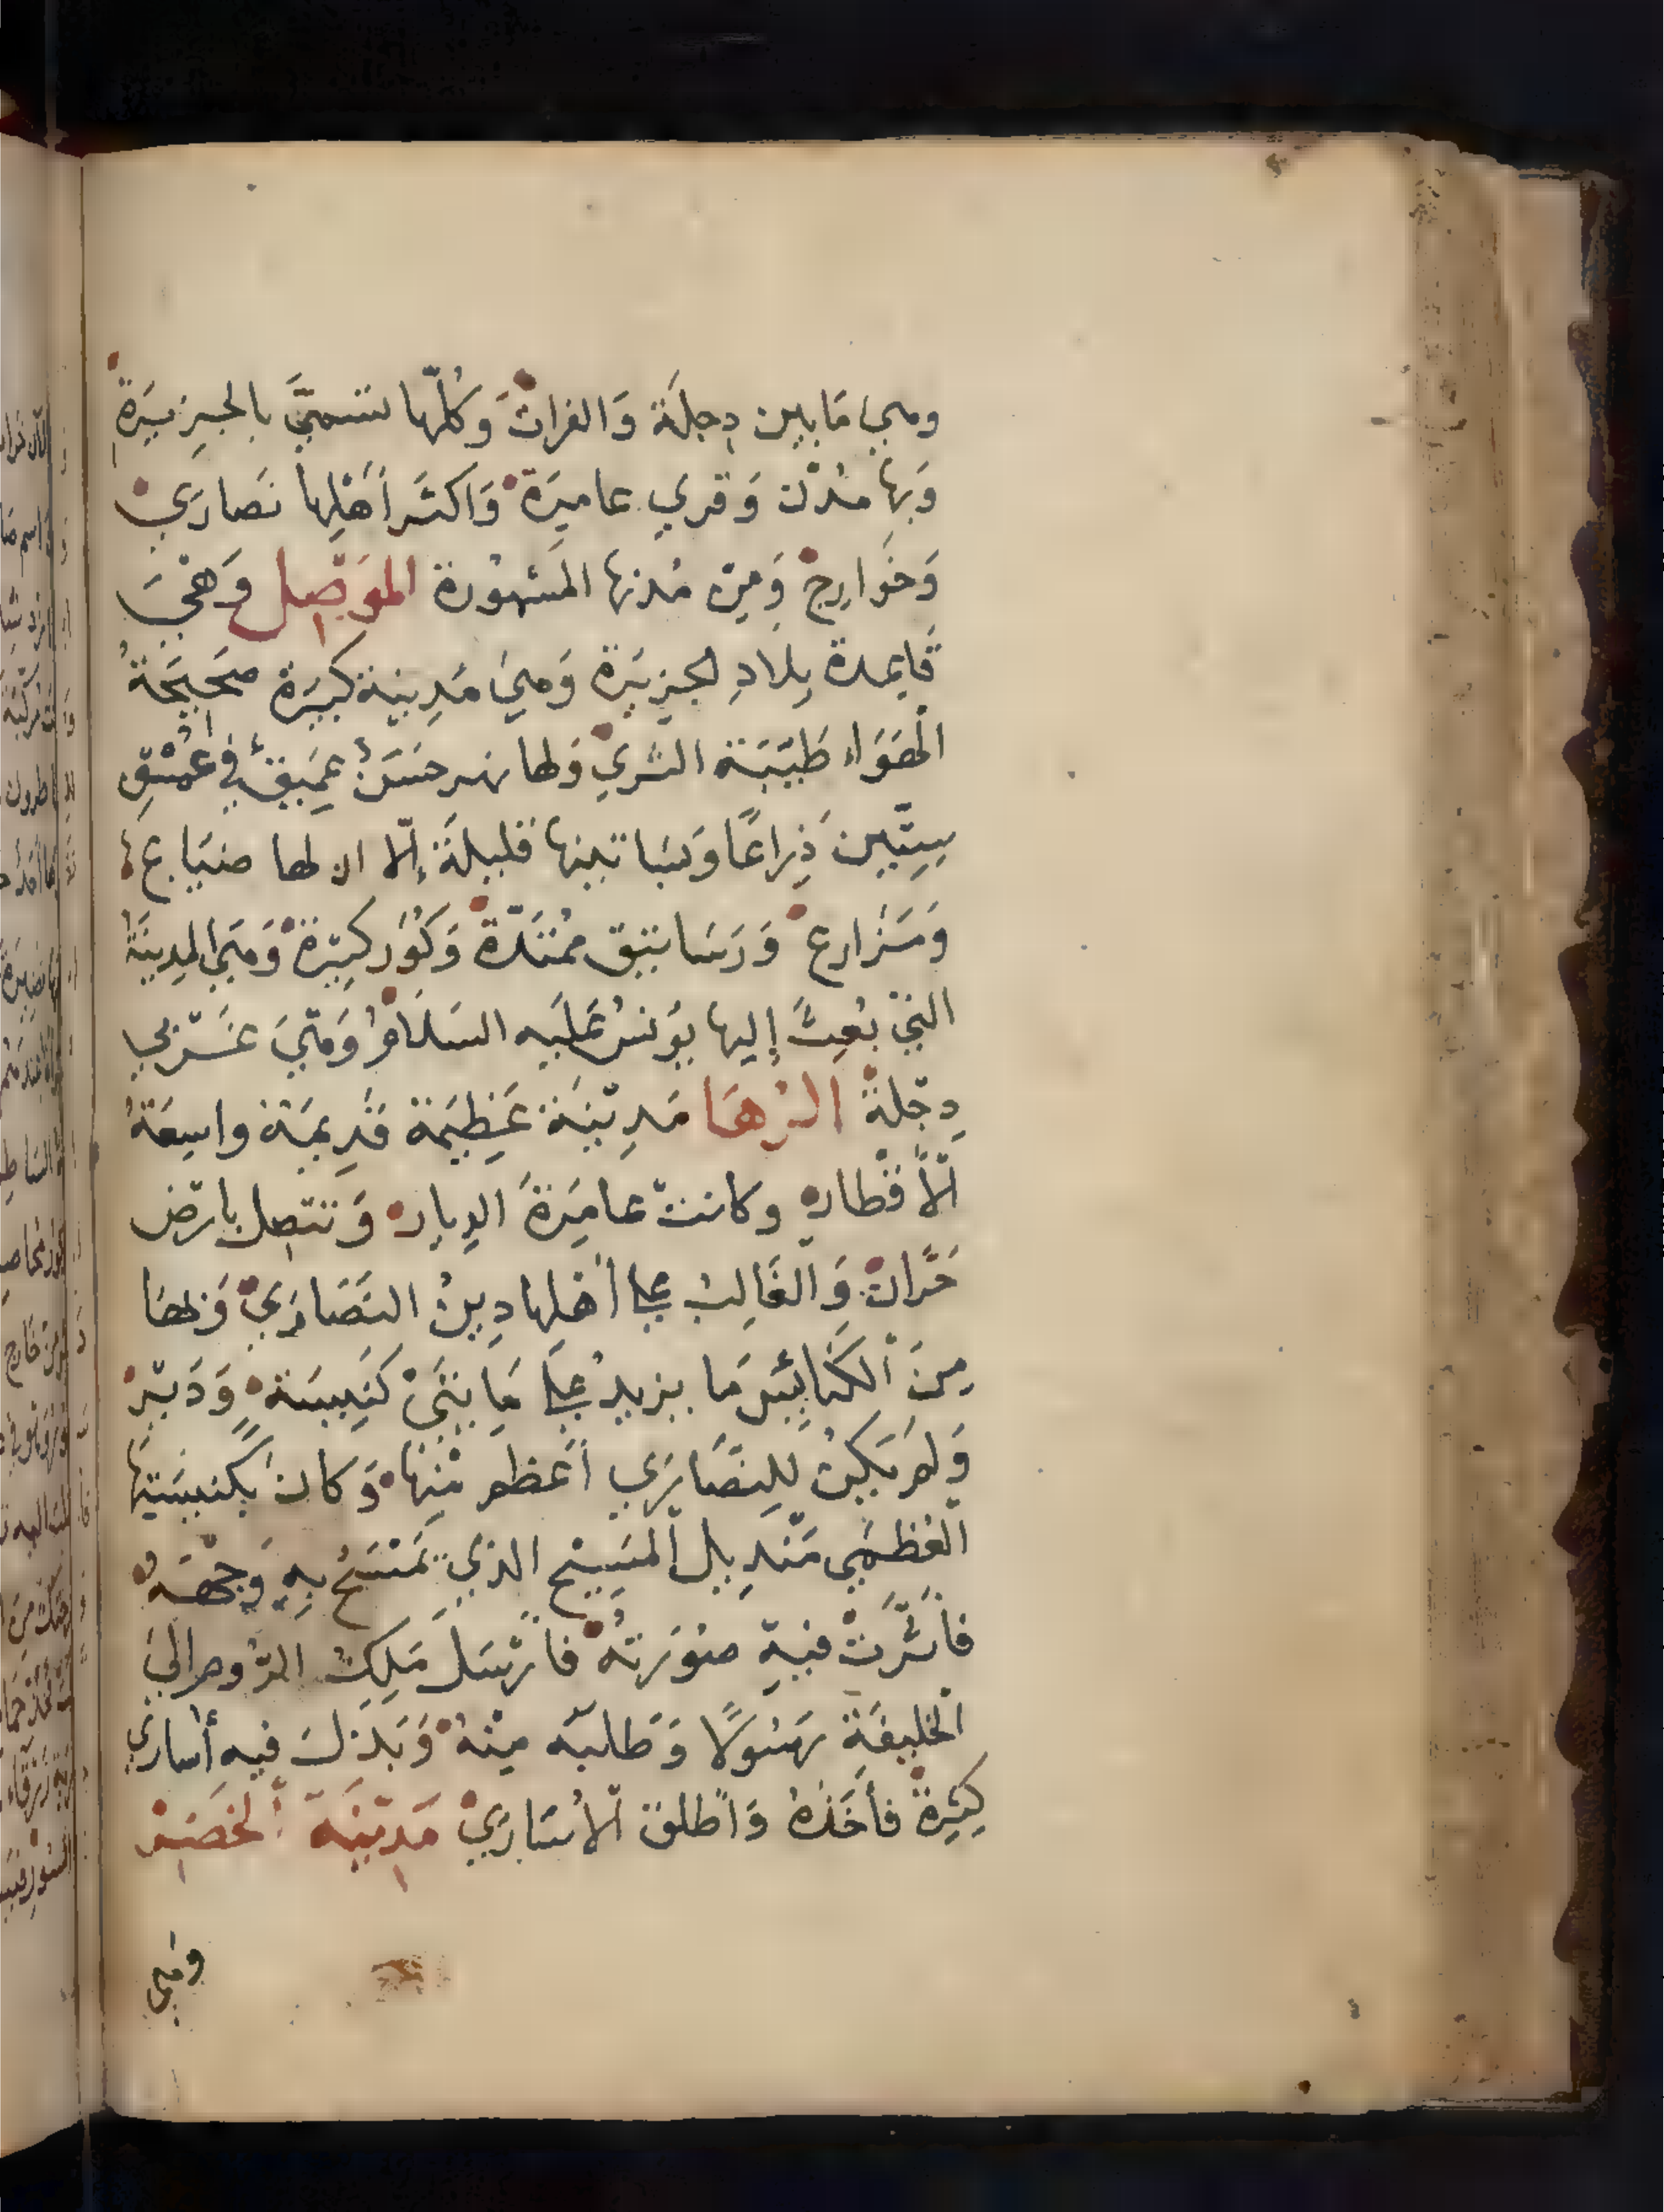 وهي مَا بين دِجلَة وَالفرات وَكلّها تسمىَّ بالجزيرَة
وَبها مدُن وَقري عاميرَة وَاكثَر أَهْلِها نَصارَي
وَخَوارِج وَمِن مُدنها المَشهُورة الموَصِل وَهْيَ
قَايمدة بِلادِ الجزيَرة وَهيَ مَدِينة كبيَرة صَحَيَحَةُ
الهَوَاء طَيّبَة الثري وَلها نهر حسَنُ عَمِيقُ في عُمْقِ
سِتّين ذِراعًا وَبسَاتينها قليلَة إلّا ان لها ضيَاع
وَمَزارع وَرسَاتيق مُمْتَدّة وَكُوَر كبيَرة وَهَيَ المدِينَة
التيْ بُعِثَ إليها يوُنسُ عَلَيه السَلَامُ وَهْيَ غَرْبي
دِجْلة الرُهَا مَدِيْنَة عَظِيَمة قَدِيمَة واسِعَةُ
اْلأَقْطار وكانتْ عامِرَةَ الديار وَتتصِل بارْض
حَرَّان وَالغَالِبُ علي أهْلها دِينُ النَصَارَيْ وَلها
مِنَ الْكنَائِسْ مَا يزيدُ علي مَايتَيْ كَنِيسَة وَدَيْرْ
وَلم يَكنْ لِلنصَارَي أعَظم مْنِهَا وَكان بِكنِيسَتِها
العُظمَي مَنْدِيل الْمَسِيْح الذي تمَسَحُ بهِ وَجْهَهُ
فأثَّرَتْ فيهِ صُورَتهُ فأرْسَل مَلِكُ الرُوم الي
الخليفَة رَسُولًا وَطلبَه مِنْهُ وَبَذلَ فيه أُسارَي
كثيِرة فأخَذهُ وَأطلق الأُسَارَيْ مَدِيْنَة الْحَضَر
وَهي